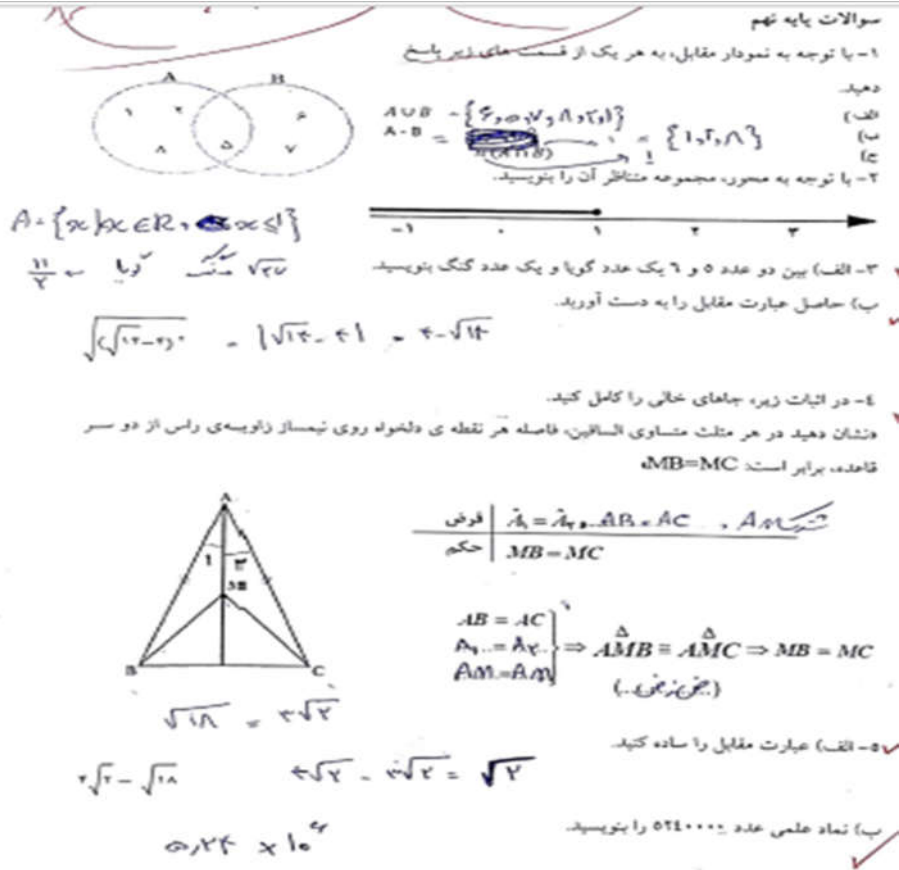 سوالات پایه نهم
۱- با توجه به نمودار مقابل، به هر یک از قسمت های زیر پاسخ
دهید.
A B
۱ ۲ ۵ ۶ ۸ ۷
الف) A∪B = {۶,۵,۷,۸,۲,۱}
ب) A - B = {۱,۲,۸}
ج) n(A∩B) ۱
۲- با توجه به محور، مجموعه متناظر آن را بنویسید.
A={x|x∈R, x≤1}
-۱ ۰ ۱ ۲ ۳
۳- الف) بین دو عدد ۵ و ۶ یک عدد گویا و یک عدد گنگ بنویسید.
√۲۷ گنگ گویا ← ۱۱/۲
ب) حاصل عبارت مقابل را به دست آورید.
√(√۱۴-۴)² = |√۱۴-۴| = ۴-√۱۴
٤- در اثبات زیر، جاهای خالی را کامل کنید.
«نشان دهید در هر مثلث متساوی الساقین، فاصله هر نقطه ی دلخواه روی نیمساز زاویه‌ی راس از دو سر
قاعده، برابر است: MB=MC»
فرض Â₁ = Â₂ , AB = AC , AM مشترک
حکم MB = MC
A
۱ ۲
M
B C
AB = AC
A₁ = A₂
AM = AM
⇒ AMB ≅ AMC ⇒ MB = MC
(ض ز ض)
√۱۸ = ۳√۲
۵- الف) عبارت مقابل را ساده کنید.
۴√۲ - √۱۸ ۴√۲ - ۳√۲ = √۲
ب) نماد علمی عدد ٥٢٤٠٠٠٠ را بنویسید.
۵,۲۴ × ۱۰⁶